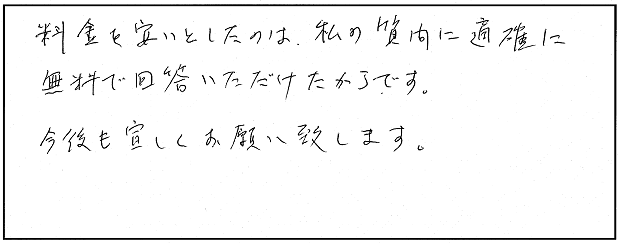 料金を安いとしたのは、私の質問に適確に
無料で回答いただけたからです。
今後も宜しくお願い致します。